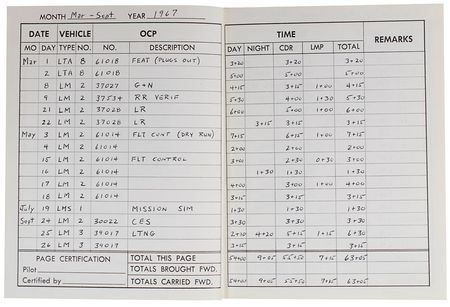 MONTH Mar - Sept YEAR 1967
DATE VEHICLE OCP TIME REMARKS
MO DAY TYPE NO. NO. DESCRIPTION DAY NIGHT CDR LMP TOTAL
Mar 1 LTA 8 61018 FEAT (PLUGS OUT) 3+20 3+20 3+20
2 LTA 8 61018 5+00 5+00 5+00
8 LM 2 37027 G+N 4+15 3+15 1+00 4+15
9 LM 2 37534 RR VERIF 5+30 4+00 1+30 5+30
21 LM 2 37028 LR 6+00 5+00 1+00 6+00
22 LM 2 37028 LR 3+15 3+15 3+15
May 3 LM 2 61014 FLT CONT (DRY RUN) 7+15 6+15 1+00 7+15
4 LM 2 61014 2+00 2+00 2+00
15 LM 2 61014 FLT CONTROL 3+00 2+30 0+30 3+00
16 LM 2 61014 1+30 1+30 1+30
17 LM 2 61014 4+00 3+00 1+00 4+00
18 LM 2 61014
July 19 LMS 1 MISSION SIM 1+30 1+30 1+30
Sept 24 LM 2 30022 CES 3+30 3+30 3+30
25 LM 3 39017 LTNG 2+10 4+20 5+15 1+15 6+30
26 LM 3 39017 3+15 3+15 3+15
PAGE CERTIFICATION TOTAL THIS PAGE 54+00 9+05 55+50 7+15 63+05
Pilot TOTALS BROUGHT FWD.
Certified by TOTALS CARRIED FWD. 54+00 9+05 55+50 7+15 63+05